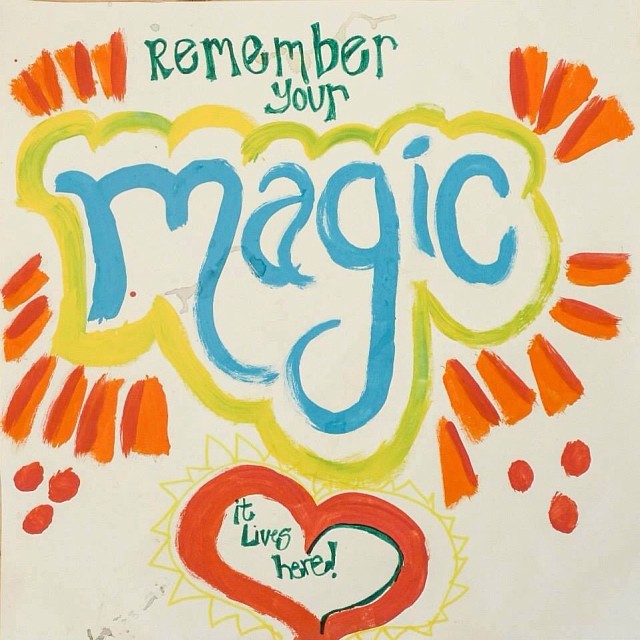 Remember
your
magic
it
Lives
here!